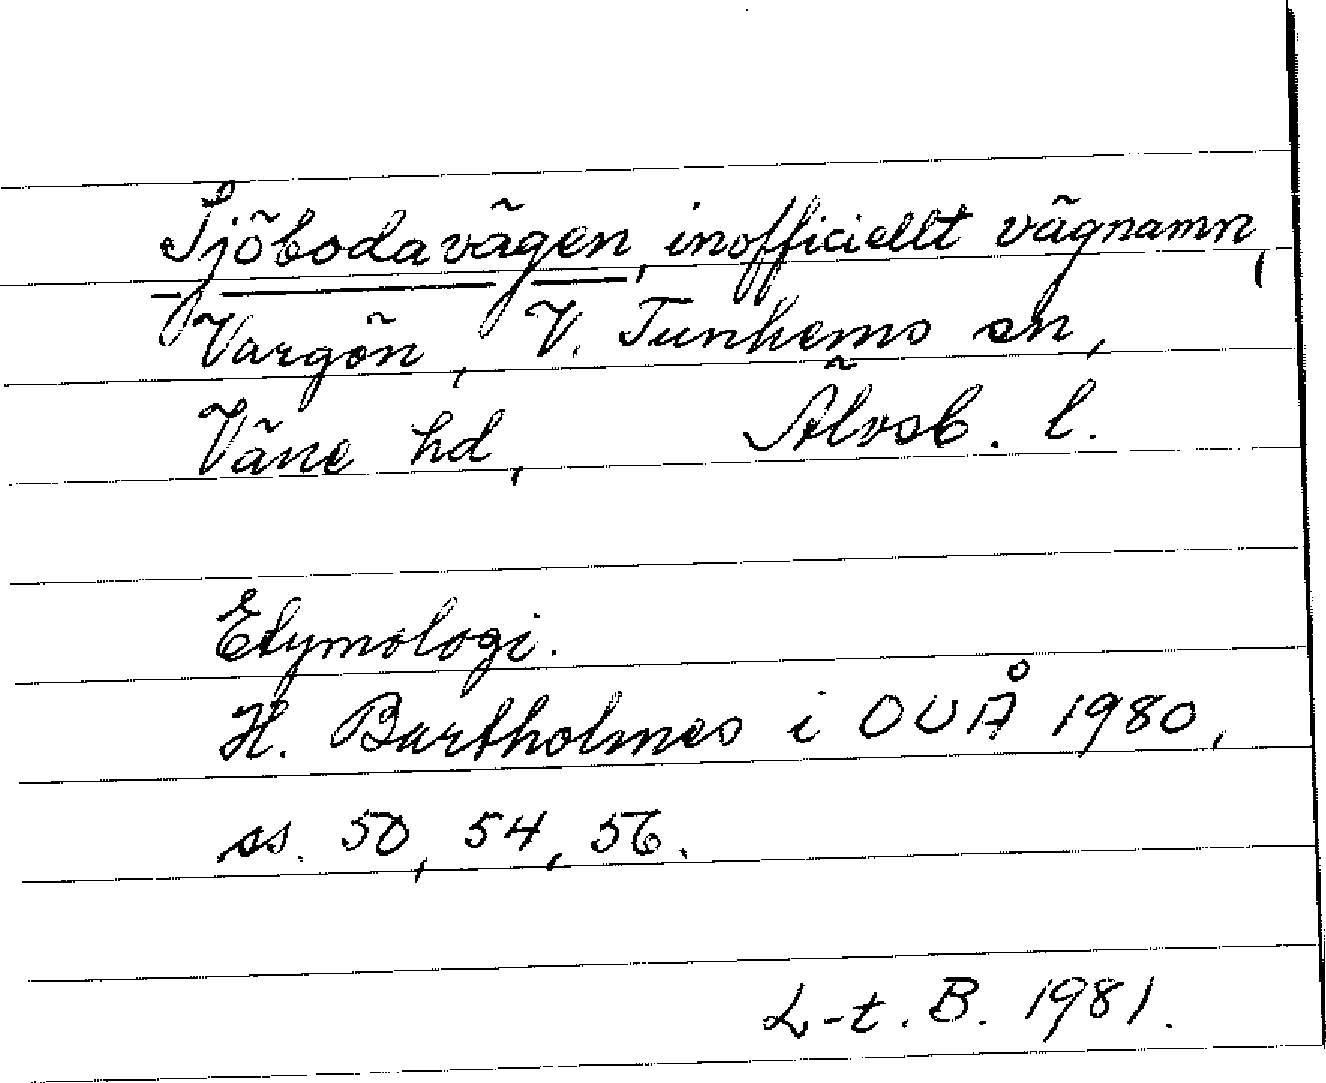 Sjöbodavägen, inofficiellt vägnamn,
Vargön, V. Tunhems sn,
Väne hd, Älvsb. l.
Etymologi.
H. Bartholmes i OUÅ 1980,
ss. 50, 54, 56.
L-t. B. 1981.